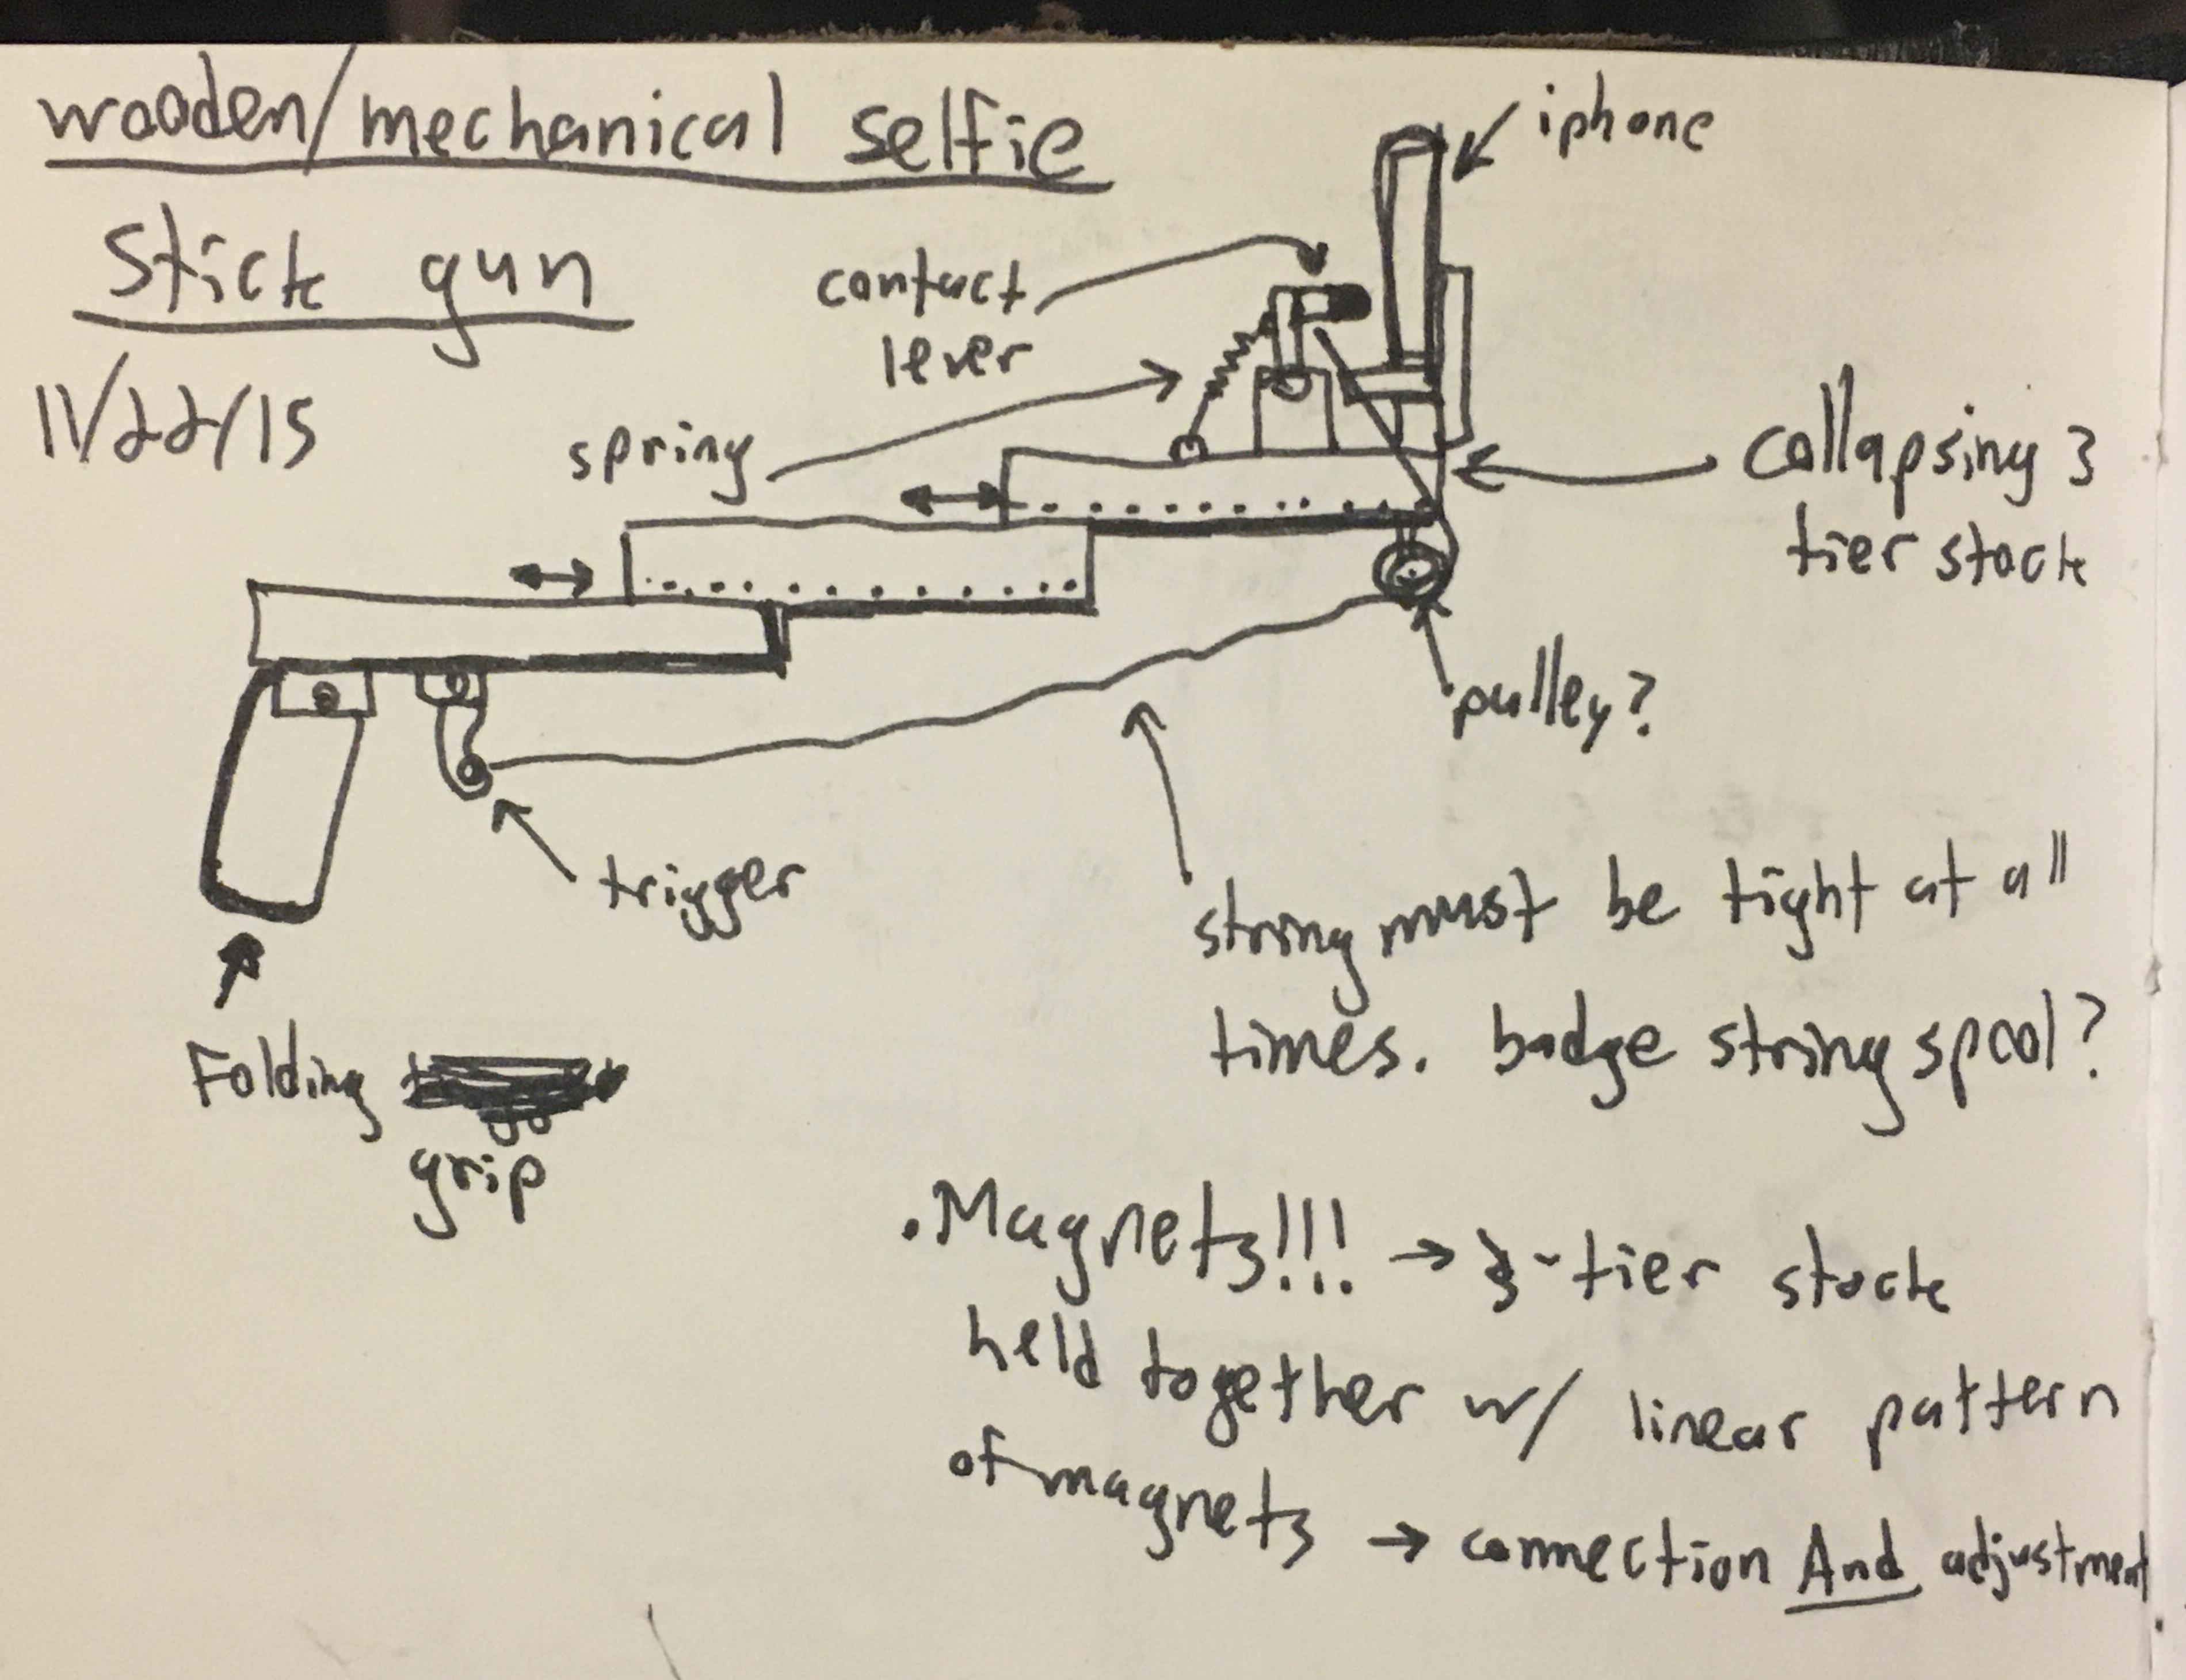 wooden/mechanical selfie
stick gun
11/22/15
iphone
contact
lever
spring
collapsing 3
tier stock
pulley?
trigger
string must be tight at all
times. badge string spool?
Folding
grip
. Magnets!!! → 3-tier stock
held together w/ linear pattern
of magnets → connection And adjustment.